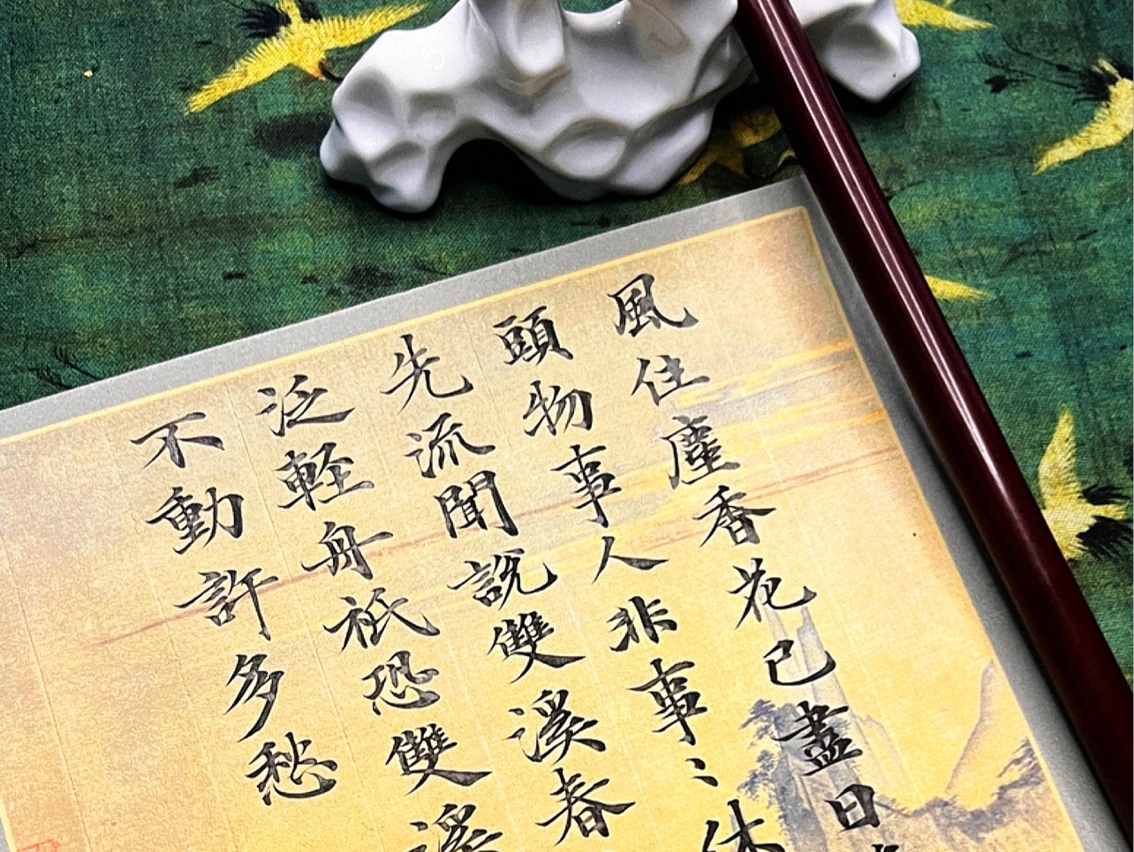 風住塵香花已盡日
頭物事人非事〻休
先流聞說雙溪春
泛輕舟祇恐雙溪
不動許多愁